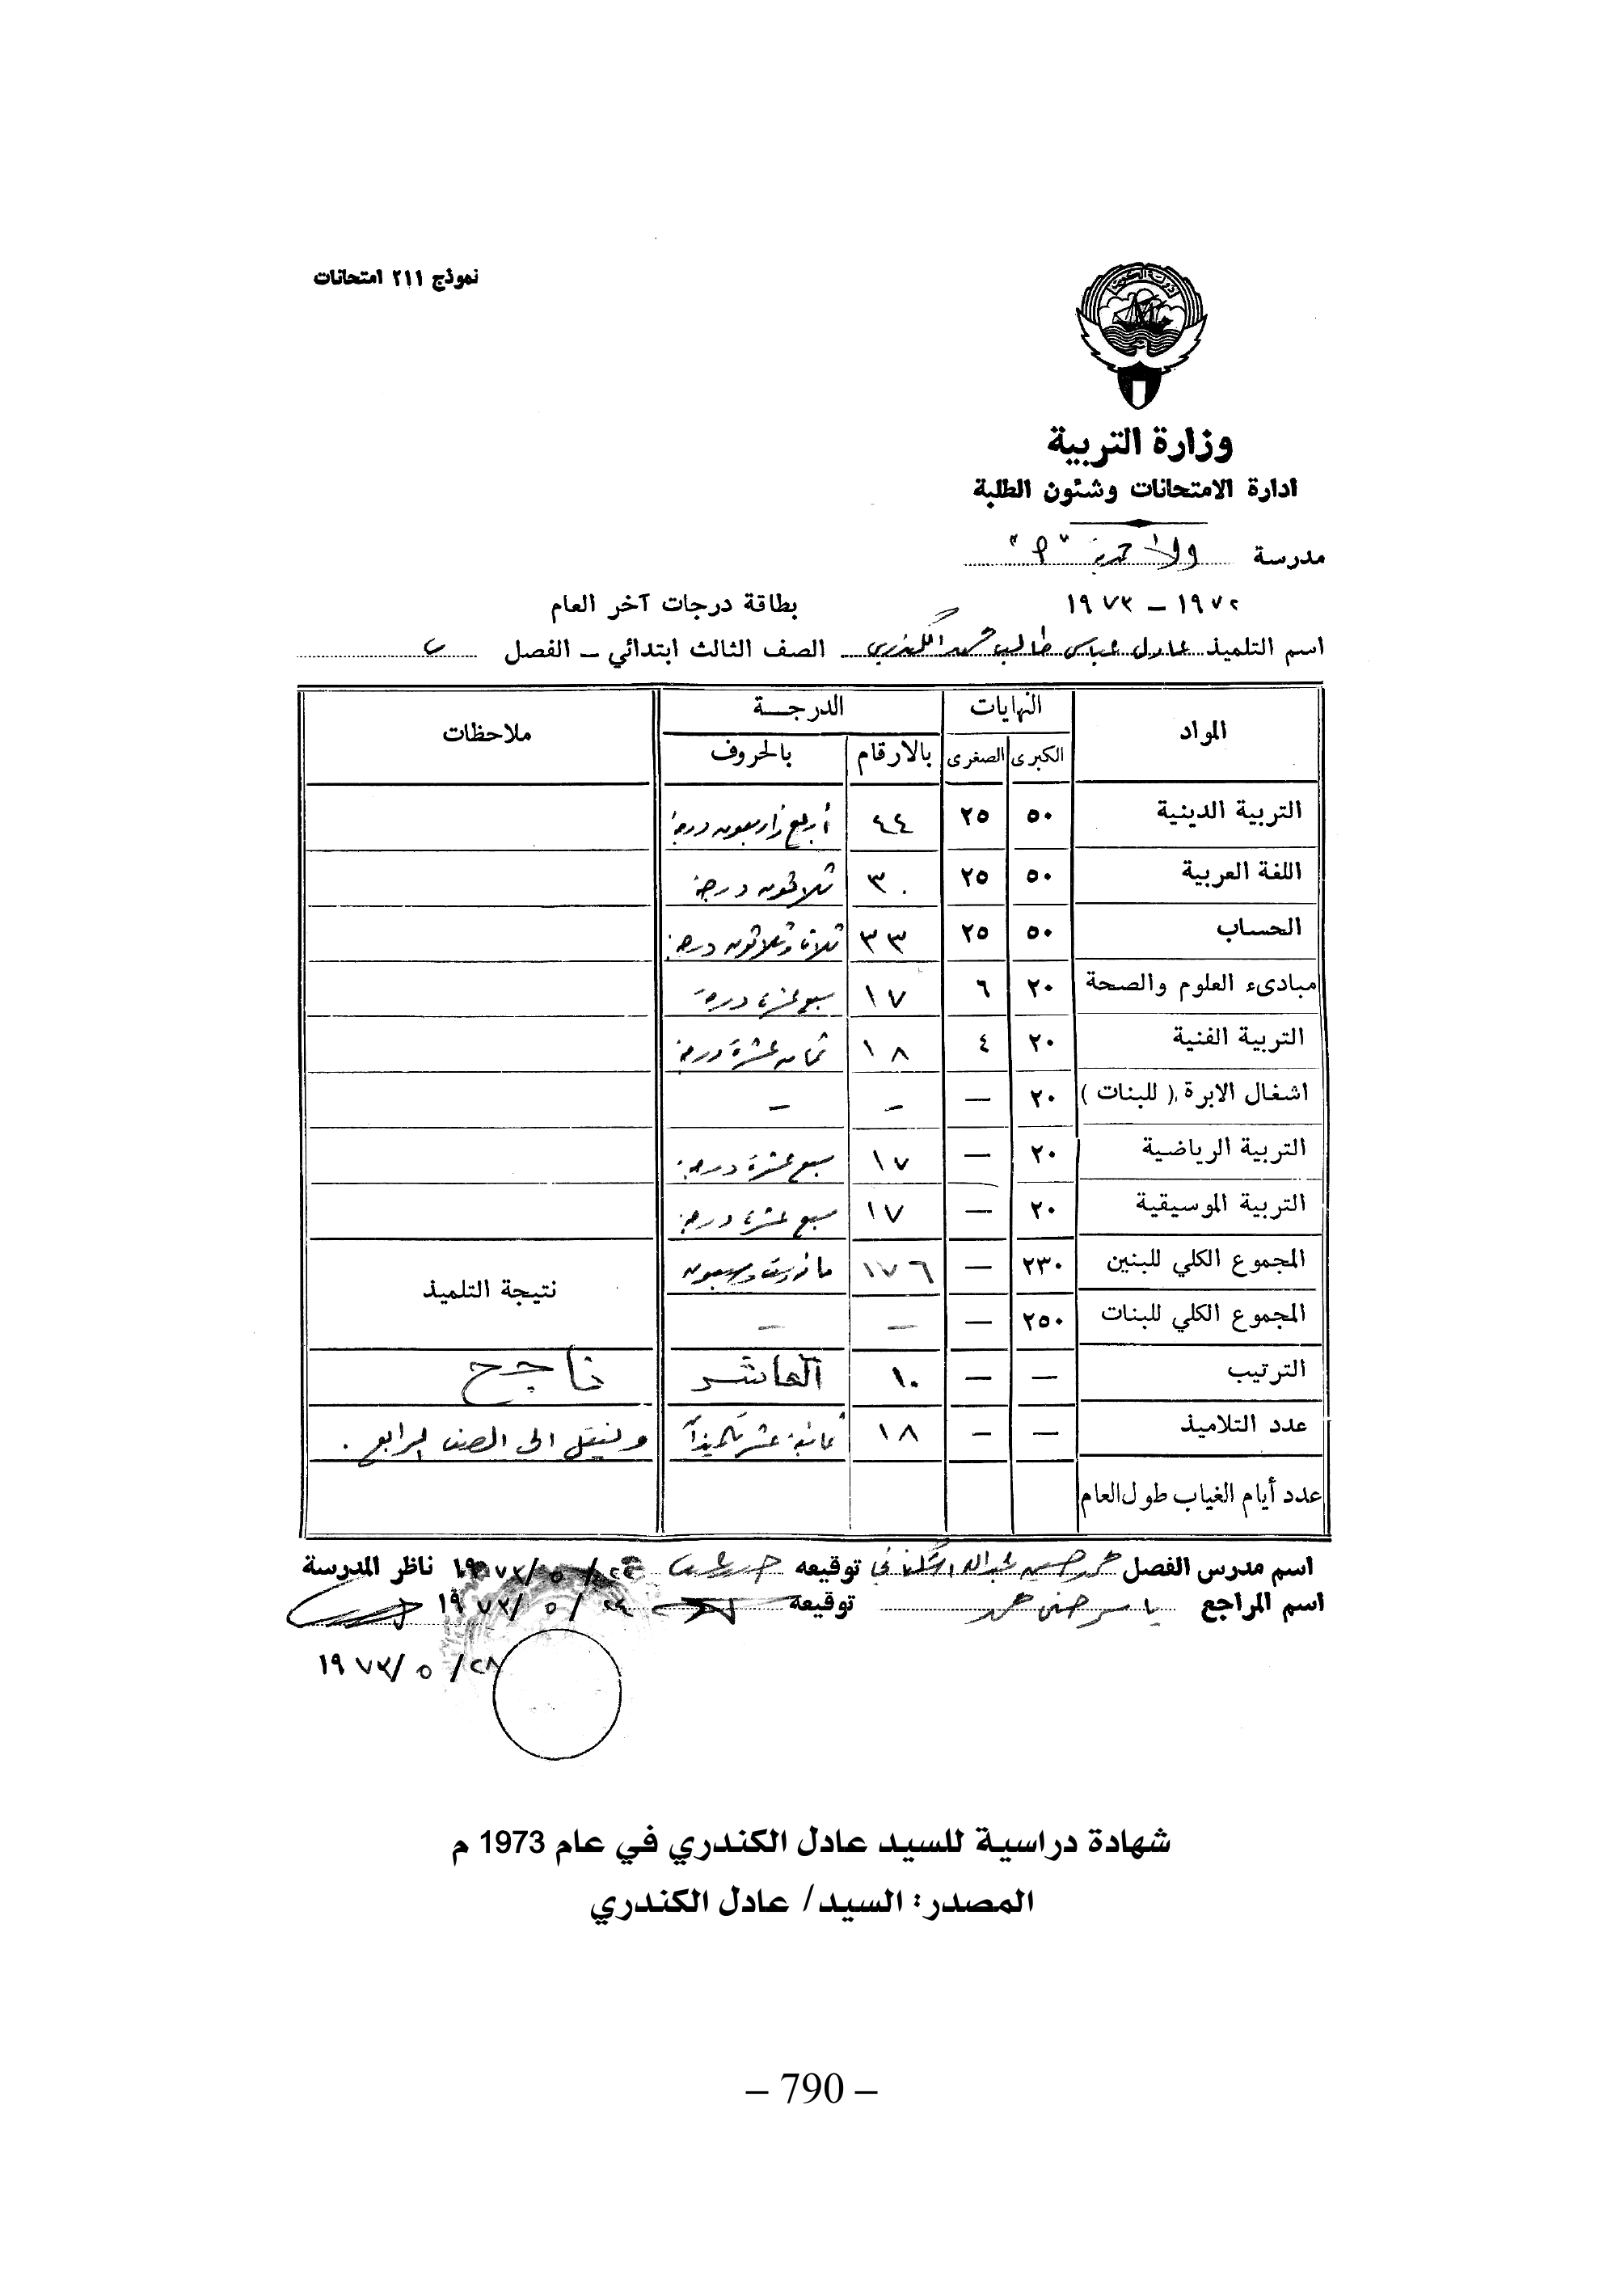 نموذج ٢١١ امتحانات
دولة الكويت
وزارة التربية
ادارة الامتحانات وشئون الطلبة
مدرسة
١٩٧٢ – ١٩٧٣
بطاقة درجات آخر العام
اسم التلميذ عادل عباس طالب محمد الكندري الصف الثالث ابتدائي – الفصل ب
المواد النهايات الدرجـــة ملاحظات
الكبرى الصغرى بالارقام بالحروف
التربية الدينية ٥٠ ٢٥ ٤٤ أربع وأربعون درجة
اللغة العربية ٥٠ ٢٥ ٣٠ ثلاثون درجة
الحساب ٥٠ ٢٥ ٣٣ ثلاث وثلاثون درجة
مبادىء العلوم والصحة ٢٠ ٦ ١٧ سبع عشرة درجة
التربية الفنية ٢٠ ٤ ١٨ ثمان عشرة درجة
اشغال الابرة ( للبنات ) ٢٠ — – –
التربية الرياضية ٢٠ — ١٧ سبع عشرة درجة
التربية الموسيقية ٢٠ — ١٧ سبع عشرة درجة
المجموع الكلي للبنين ٢٣٠ — ١٧٦ مائة وست وسبعون
نتيجة التلميذ
المجموع الكلي للبنات ٢٥٠ — – –
الترتيب — — ١٠ العاشر ناجح
عدد التلاميذ — – ١٨ ثمانية عشر تلميذاً وينقل الى الصف الرابع .
عدد أيام الغياب طول العام
اسم مدرس الفصل محمد حسين عبدالله توقيعه ٥/ ١٩٧٣ ناظر المدرسة
اسم المراجع ياسر حنفي محمد توقيعه ٢٤/ ٥/ ١٩٧٣
٢٨/ ٥/ ١٩٧٣
شهادة دراسية للسيد عادل الكندري في عام 1973 م
المصدر: السيد/ عادل الكندري
– 790 –